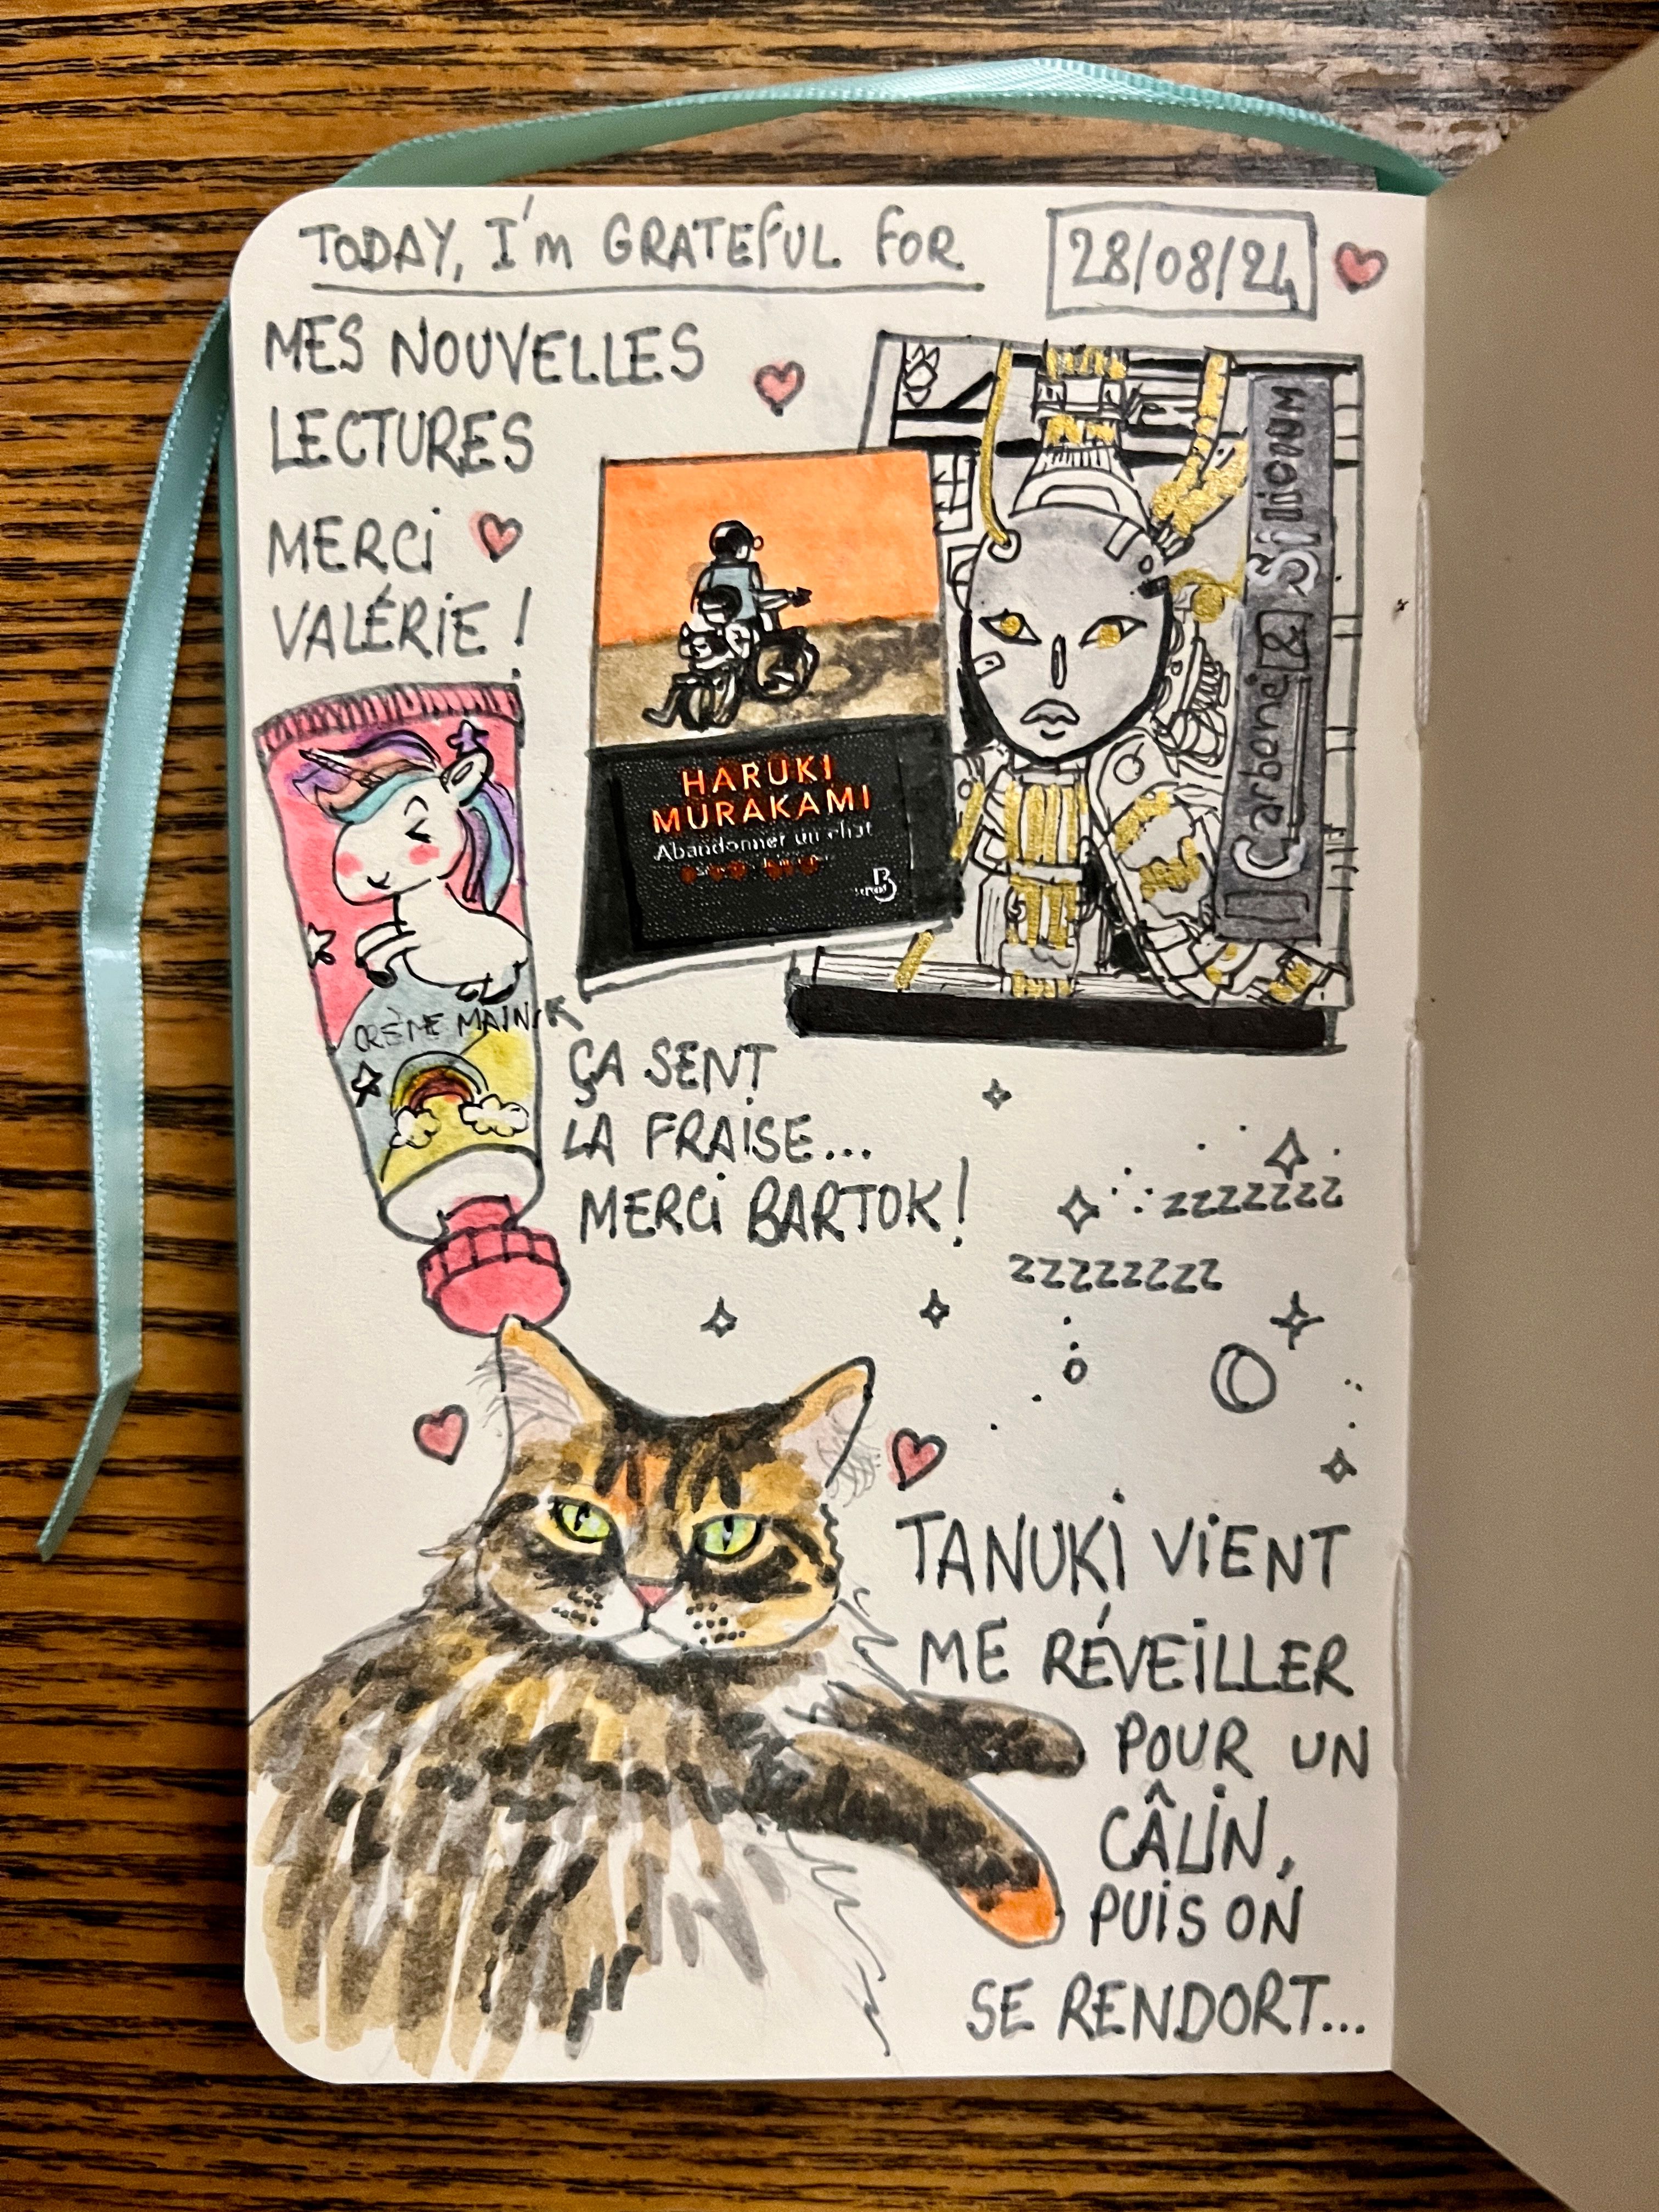 TODAY, I'm GRATEFUL FOR
28/08/24
MES NOUVELLES
LECTURES
MERCI
VALÉRIE !
HARUKI
MURAKAMI
Abandonner un chat
Carbone & Silicium
CRÈME MAINS
ÇA SENT
LA FRAISE...
MERCI BARTOK !
zzzzzzz
zzzzzzzz
TANUKI VIENT
ME RÉVEILLER
POUR UN
CÂLIN,
PUIS ON
SE RENDORT...